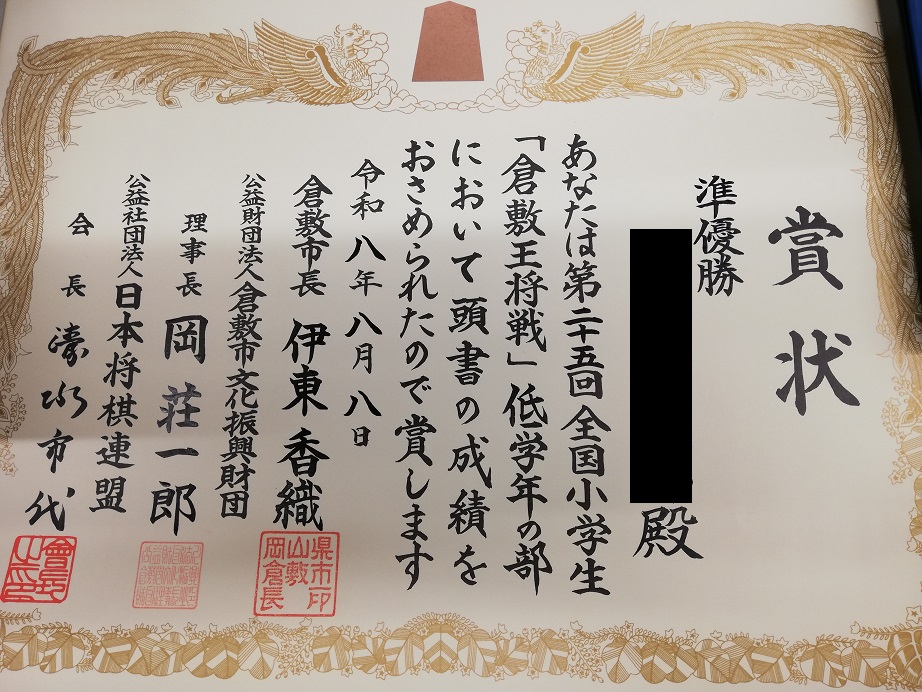 賞状
準優勝
殿
あなたは第二十五回全国小学生
「倉敷王将戦」低学年の部
において頭書の成績を
おさめられたので賞します
令和八年八月八日
倉敷市長 伊東香織
岡山県倉敷市長印
公益財団法人倉敷市文化振興財団
理事長 岡荘一郎
公益社団法人日本将棋連盟
会長 清水市代
會長之印